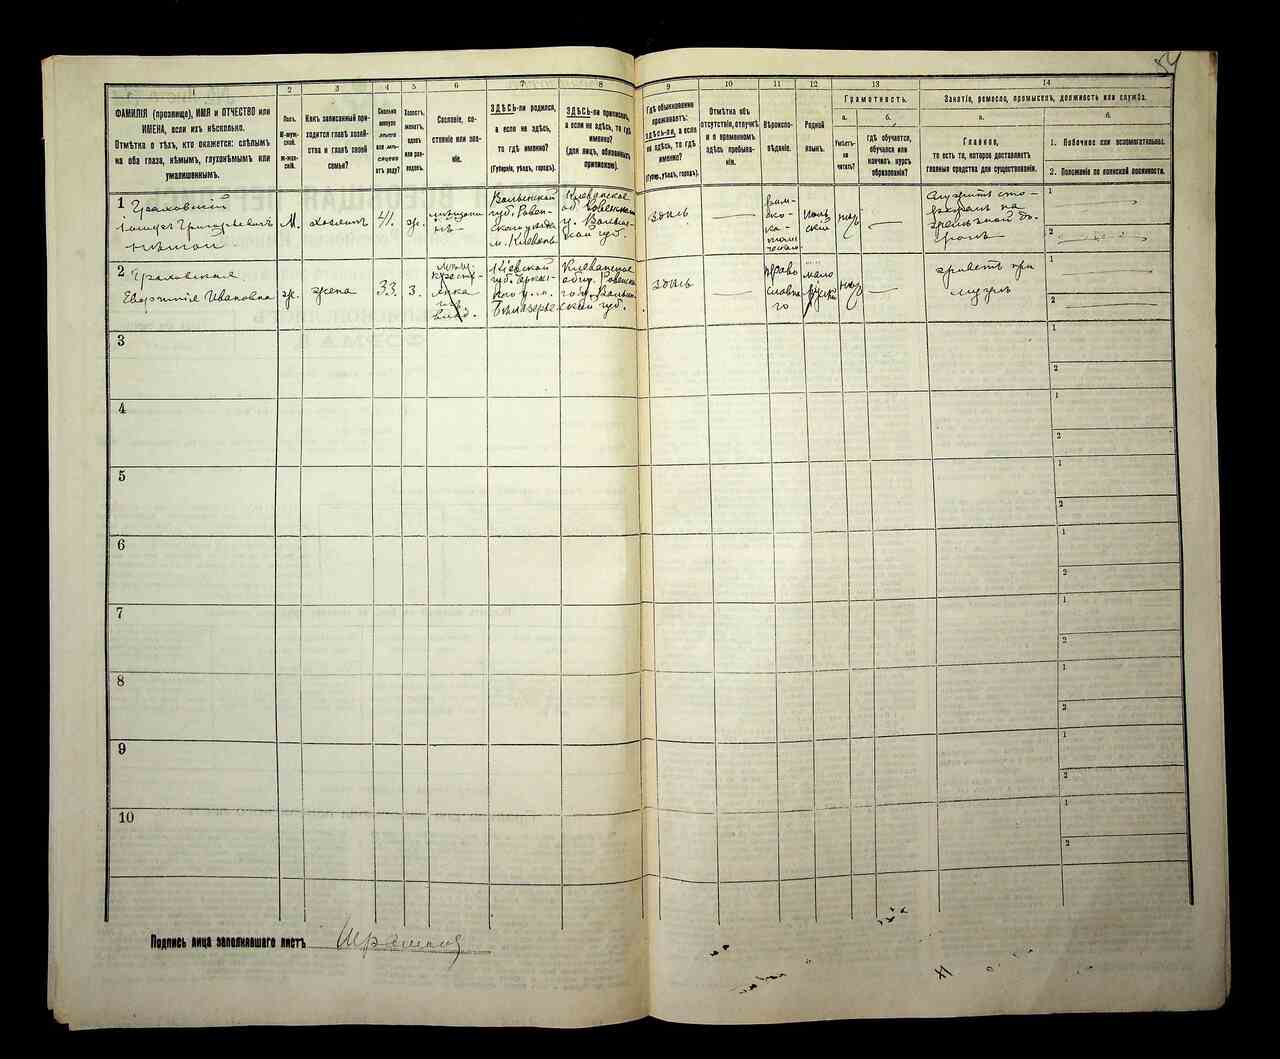 54
1
2
3
4
5
6
7
8
9
10
11
12
13
14
ФАМИЛІЯ (прозвище), ИМЯ и ОТЧЕСТВО или
ИМЕНА, если ихъ нѣсколько.
Отмѣтка о тѣхъ, кто окажется: слѣпымъ
на оба глаза, нѣмымъ, глухонѣмымъ или
умалишеннымъ.
Полъ.
М-муж-
ской.
Ж-жен-
скій.
Какъ записанный при-
ходится главѣ хозяй-
ства и главѣ своей
семьи?
Сколько
минуло
лѣтъ
или мѣ-
сяцевъ
отъ роду?
Холостъ,
женатъ,
вдовъ
или раз-
веденъ.
Сословіе, со-
стояніе или зва-
ніе.
ЗДѢСЬ-ли родился,
а если не здѣсь,
то гдѣ именно?
(Губернія, уѣздъ, городъ).
ЗДѢСЬ-ли приписанъ,
а если не здѣсь, то гдѣ
именно?
(для лицъ, обязанныхъ
припискою).
Гдѣ обыкновенно
проживаетъ:
здѣсь-ли, а если
не здѣсь, то гдѣ
именно?
(Губер., уѣздъ, городъ).
Отмѣтка объ
отсутствіи, отлучкѣ
и о временномъ
здѣсь пребыва-
ніи.
Вѣроиспо-
вѣданіе.
Родной
языкъ.
Грамотность.
а.
Умѣетъ-
ли
читать?
б.
гдѣ обучается,
обучался или
кончилъ курсъ
образованія?
Занятіе, ремесло, промыселъ, должность или служба.
а.
Главное,
то есть то, которое доставляетъ
главныя средства для существованія.
б.
1. Побочное или вспомогательное.
2. Положеніе по воинской повинности.
1
Григорьевичъ
М.
хозяинъ
41.
ж.
Волынской
губ. Ровен-
скаго уѣзда
м. Клевань
Клеванское
об. Ровенскаго
у. Волын-
ской губ.
здѣсь
—
рим-
ско-
ка-
толи-
ческаго
поль
скій
нѣтъ
—
Служитъ сто-
рожемъ на
желѣзной до-
рогѣ
1
—
2
—
2
Евфимія Ивановна
ж.
жена
33.
З.
Кіевской
губ. Черкас-
Бѣлозерье
Клеванское
общ. Ровенска-
го у. Волын-
ской губ.
здѣсь
—
право
славна-
го
мало
русскій
нѣтъ
—
живетъ при
мужѣ
1
—
2
—
3
1
2
4
1
2
5
1
2
6
1
2
7
1
2
8
1
2
9
1
2
10
1
2
Подпись лица заполнявшаго листъ